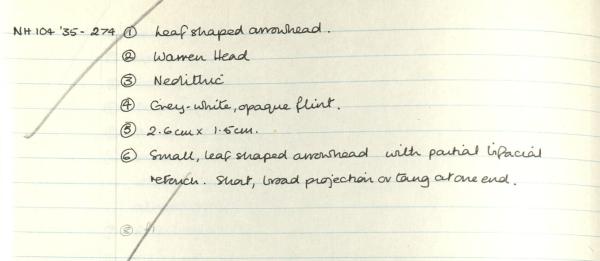 NH 104 '35 - 274 ① Leaf shaped arrowhead.
② Warren Head
③ Neolithic
④ Grey-white, opaque flint.
⑤ 2.6cm x 1.5cm.
⑥ Small, leaf shaped arrowhead with partial bifacial
retouch. Short, broad projection or tang at one end.